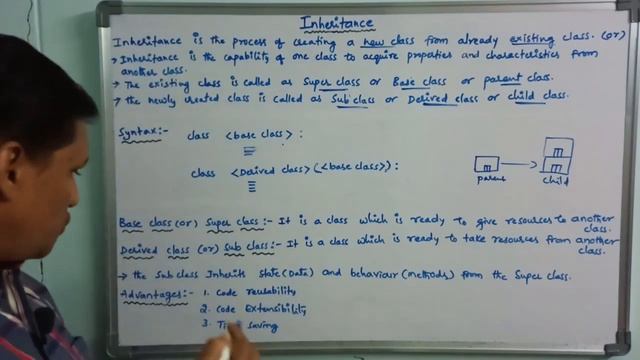 Inheritance
Inheritance is the process of creating a new class from already existing class. (or)
→ Inheritance is the capability of one class to acquire properties and characteristics from
another class.
→ The existing class is called as Super class or Base class or parent class.
→ the newly created class is called as Sub class or Derived class or child class.
Syntax:- class <base class> :
class <Derived class>(<base class>) :
parent child
Base class (or) Super class :- It is a class which is ready to give resources to another
class.
Derived class (or) Sub class :- It is a class which is ready to take resources from another
class.
→ the Sub class Inherits State (Data) and behaviour (methods) from the Super class.
Advantages:- 1. Code reusability
2. Code Extensibility
3. Time saving